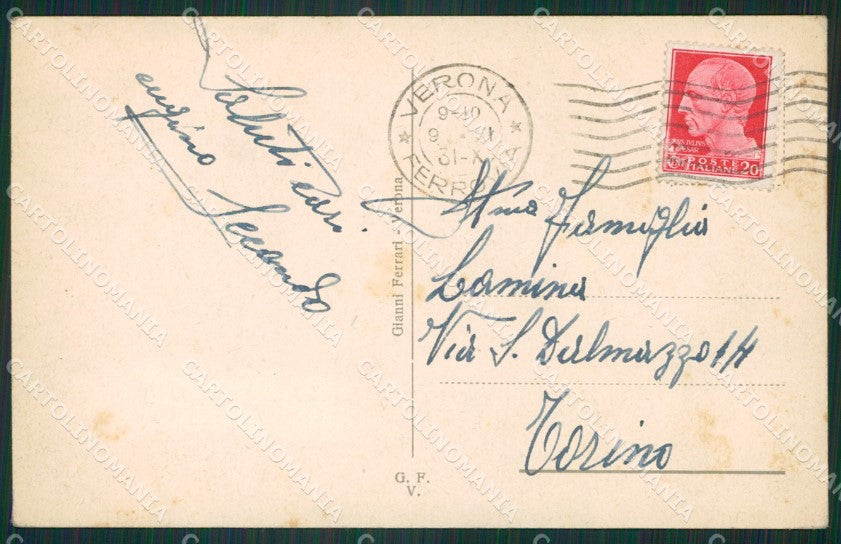 Saluti cari
cugino Secondo
VERONA
9-10
31-X
FERROVIA
IVLIVS
CAESAR
POSTE
ITALIANE 20
Gianni Ferrari - Verona
Famiglia
Lamina
Via S. Dalmazzo 14
Torino
G. F.
V.
CARTOLINOMANIA